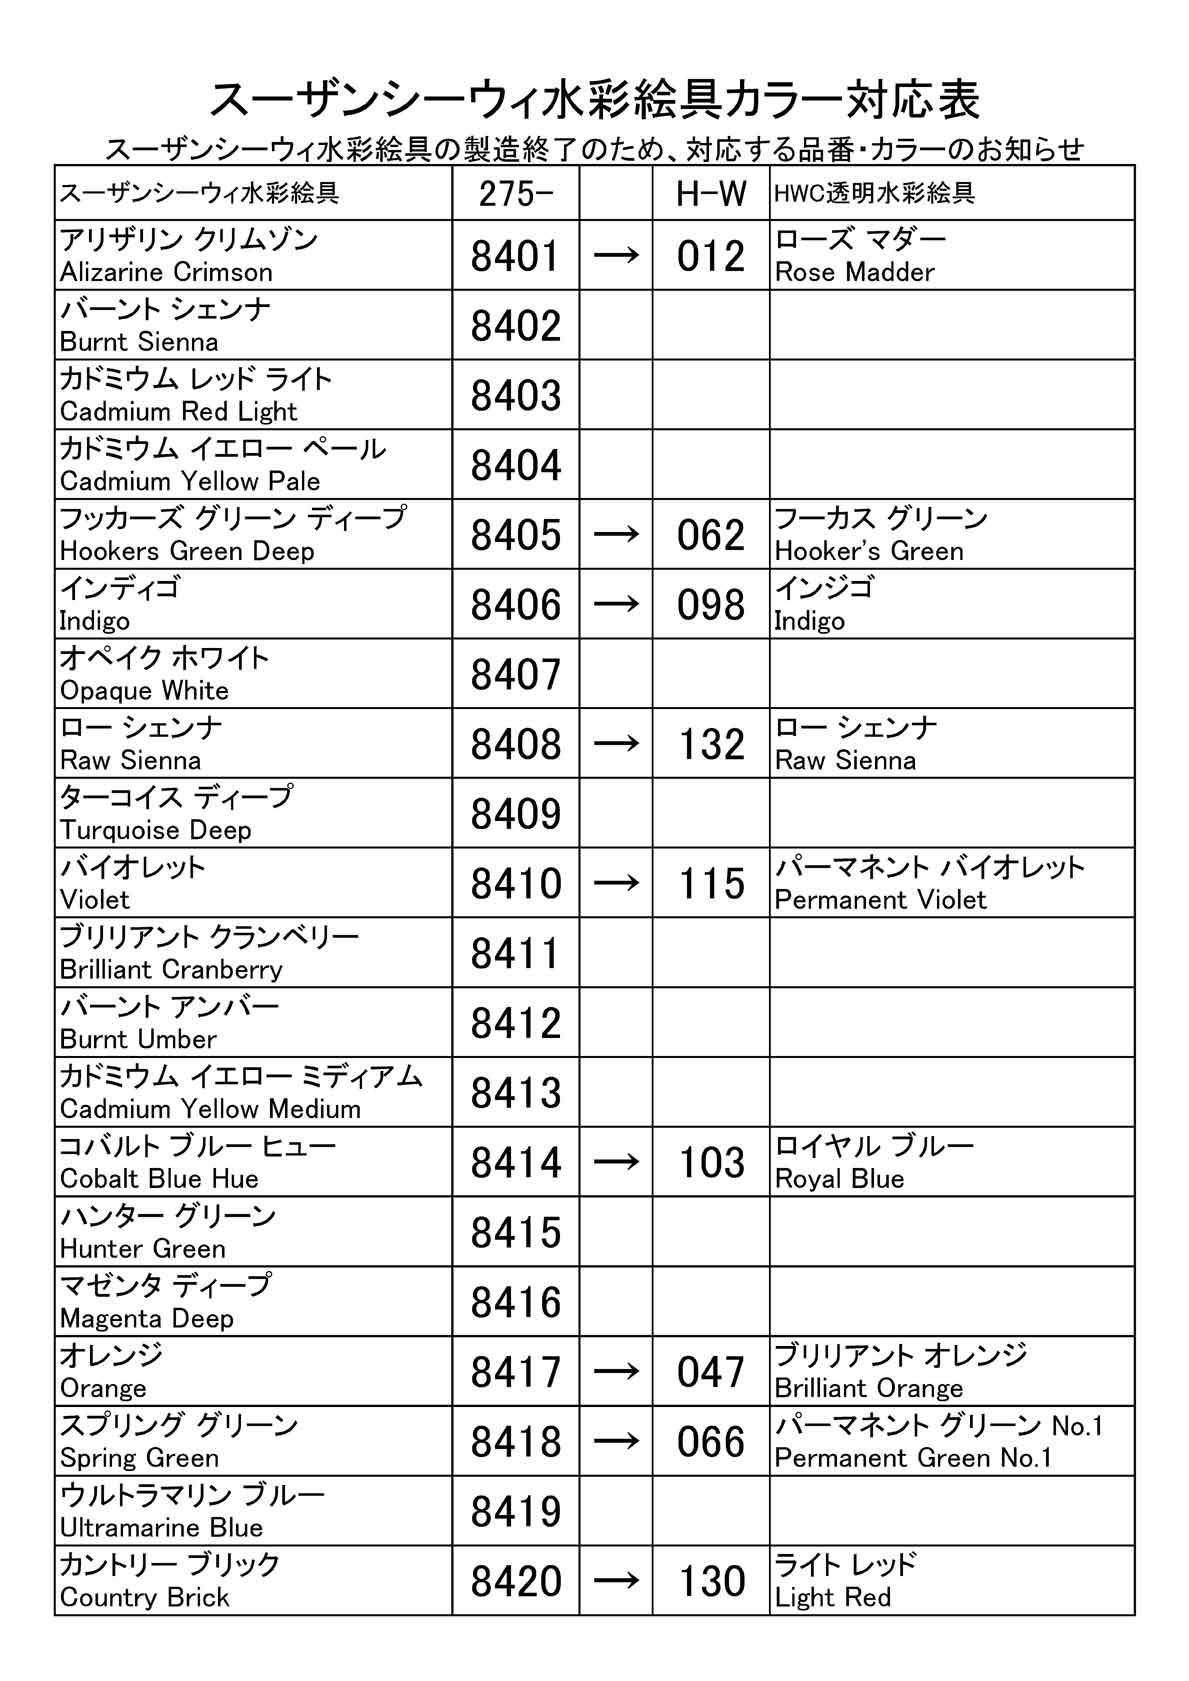 スーザンシーウィ水彩絵具カラー対応表
スーザンシーウィ水彩絵具の製造終了のため、対応する品番・カラーのお知らせ
スーザンシーウィ水彩絵具 275- H-W HWC透明水彩絵具
アリザリン クリムゾン ローズ マダー
8401 → 012
Alizarine Crimson Rose Madder
バーント シェンナ
8402
Burnt Sienna
カドミウム レッド ライト
8403
Cadmium Red Light
カドミウム イエロー ペール
8404
Cadmium Yellow Pale
フッカーズ グリーン ディープ フーカス グリーン
8405 → 062
Hookers Green Deep Hooker's Green
インディゴ インジゴ
8406 → 098
Indigo Indigo
オペイク ホワイト
8407
Opaque White
ロー シェンナ ロー シェンナ
8408 → 132
Raw Sienna Raw Sienna
ターコイス ディープ
8409
Turquoise Deep
バイオレット パーマネント バイオレット
8410 → 115
Violet Permanent Violet
ブリリアント クランベリー
8411
Brilliant Cranberry
バーント アンバー
8412
Burnt Umber
カドミウム イエロー ミディアム
8413
Cadmium Yellow Medium
コバルト ブルー ヒュー ロイヤル ブルー
8414 → 103
Cobalt Blue Hue Royal Blue
ハンター グリーン
8415
Hunter Green
マゼンタ ディープ
8416
Magenta Deep
オレンジ ブリリアント オレンジ
8417 → 047
Orange Brilliant Orange
スプリング グリーン パーマネント グリーン No.1
8418 → 066
Spring Green Permanent Green No.1
ウルトラマリン ブルー
8419
Ultramarine Blue
カントリー ブリック ライト レッド
8420 → 130
Country Brick Light Red